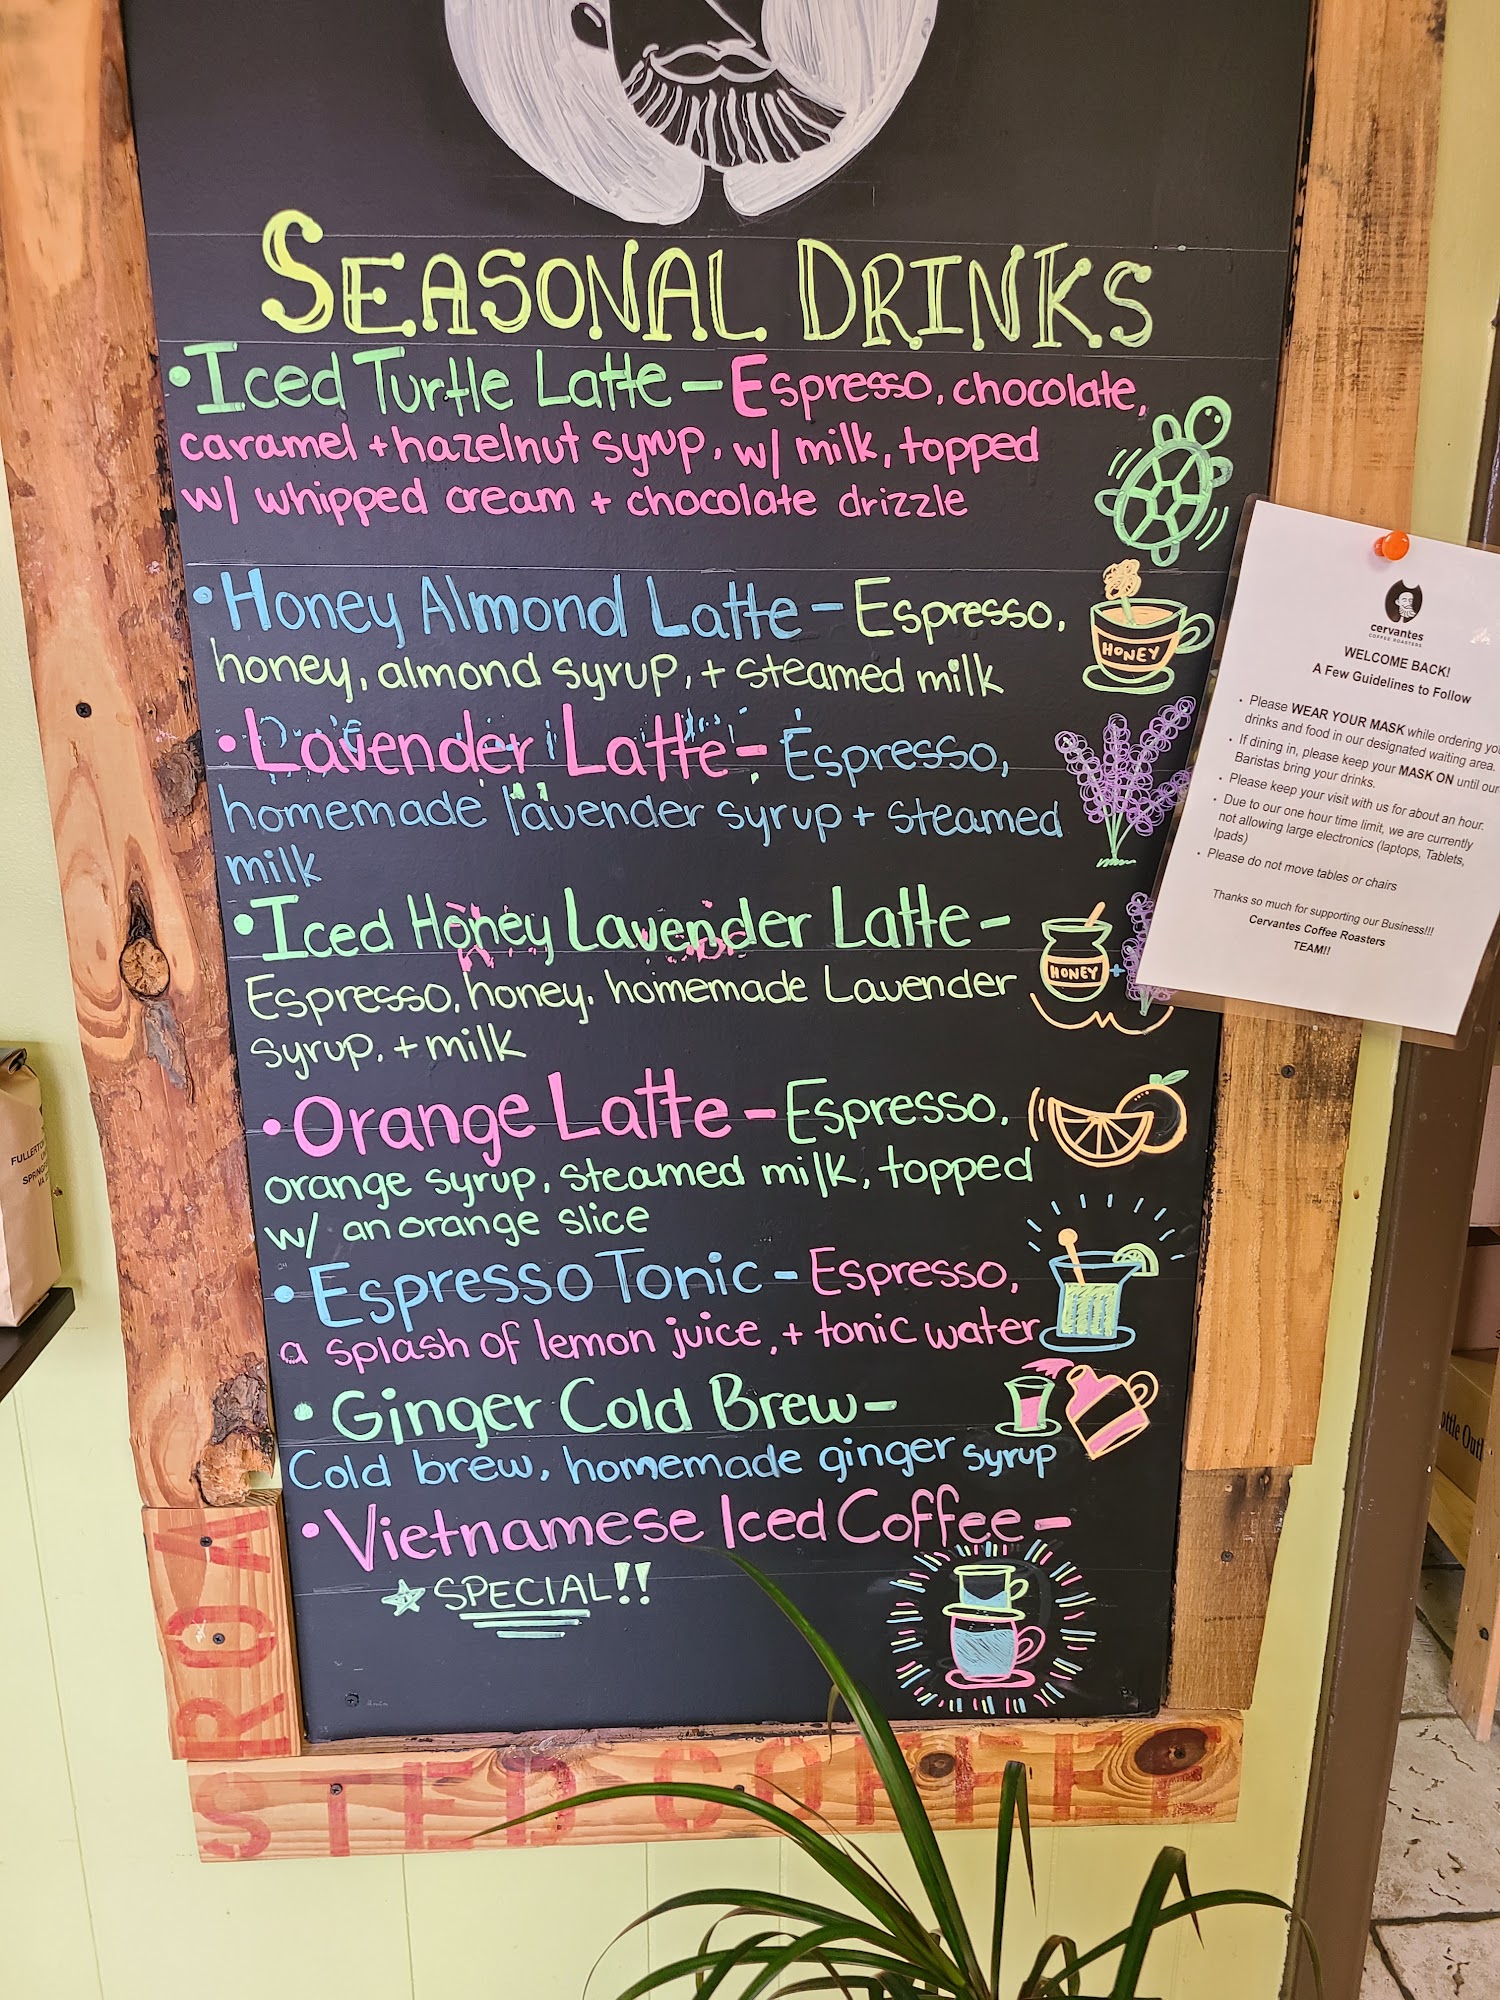 SEASONAL DRINKS
• Iced Turtle Latte - Espresso, chocolate,
caramel + hazelnut syrup, w/ milk, topped
w/ whipped cream + chocolate drizzle
• Honey Almond Latte - Espresso,
honey, almond syrup, + steamed milk
HONEY
• Lavender Latte - Espresso,
homemade lavender syrup + steamed
milk
• Iced Honey Lavender Latte -
Espresso, honey, homemade Lavender
syrup, + milk
HONEY +
• Orange Latte - Espresso,
orange syrup, steamed milk, topped
w/ an orange slice
• Espresso Tonic - Espresso,
a splash of lemon juice, + tonic water
• Ginger Cold Brew -
Cold brew, homemade ginger syrup
• Vietnamese Iced Coffee -
SPECIAL!!
ROA
STED COFFEE
cervantes
COFFEE ROASTERS
WELCOME BACK!
A Few Guidelines to Follow
• Please WEAR YOUR MASK while ordering
drinks and food in our designated waiting area.
• If dining in, please keep your MASK ON until our
Baristas bring your drinks.
• Please keep your visit with us for about an hour.
• Due to our one hour time limit, we are currently
not allowing large electronics (laptops, Tablets,
Ipads)
• Please do not move tables or chairs
Thanks so much for supporting our Business!!!
Cervantes Coffee Roasters
TEAM!!
SPRING
VA